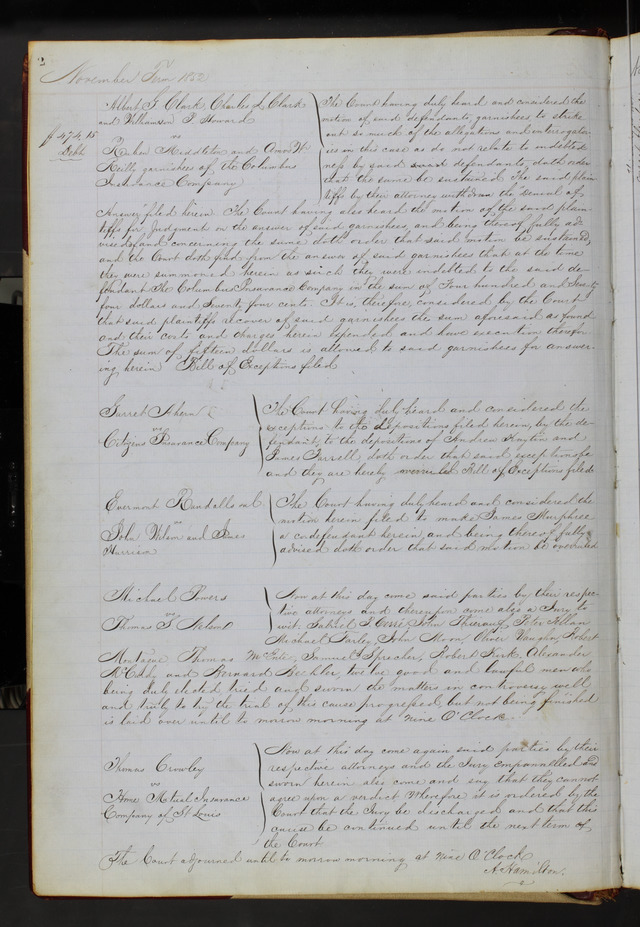 2
November Term 1852
Albert G Clark, Charles L Clark
and Williamson P Howard
vs
$474.15
Debt
Reuben Middleton and Amon W
Reilly garnishees of the Columbus
Insurance Company
The Court having duly heard and considered the
motion of said defendants, garnishees to strike
out so much of the allegations and interrogator-
ies in this case as do not relate to indebted-
ness by said defendants, doth order
that the same be sustained. The said plain-
tiffs by their attorney withdraw the denial of
Answer filed herein. The Court having also heard the motion of the said plain-
tiffs for Judgment on the answer of said garnishees, and being thereof fully ad-
vised and concerning the same doth order that said motion be sustained,
and the Court doth find from the answer of said garnishees that at the time
they were summoned herein as such they were indebted to the said de-
fendant The Columbus Insurance Company in the sum of Four hundred and Seventy
four dollars and Seventy four cents. It is, therefore, considered by the Court
that said plaintiffs recover of said garnishees the sum aforesaid as found
and their costs and charges herein expended and have execution therefor.
The sum of fifteen dollars is allowed to said garnishees for answer-
ing herein Bill of Exceptions filed
Garret Ahern
vs
Citizens Insurance Company
The Court having duly heard and considered the
exceptions to the depositions filed herein, by the de-
fendant, to the depositions of Andrew and
James Farrell, doth order that said exceptions be
and they are hereby overruled Bill of Exceptions filed
Evermont Randalls et al
vs
John Wilson and James
Harrison
The Court having duly heard and considered the
motion herein filed to make James Murphree
a codefendant herein, and being thereof fully
advised doth order that said motion be overruled
Michael Powers
vs
Thomas S Nelson
Now at this day come said parties by their respec-
tive attorneys and thereupon come also a Jury to
wit, Gabriel S John Peter
Michael Farley, John Moon, Oliver Vaughn, Robert
Montague Thomas McEntee, Samuel Spracher, Robert Kirk, Alexander
and Bernard twelve good and lawful men who
being duly elected tried and sworn the matters in controversy well
and truly to try the trial of this cause progressed, but not being finished
is laid over until to morrow morning at Nine O'Clock.
Thomas Crowley
vs
Home Mutual Insurance
Company of St Louis
Now at this day come again said parties by their
respective attorneys and the Jury empannelled and
sworn herein also come and say that they cannot
agree upon a verdict Wherefore it is ordered by the
Court that the Jury be discharged and that this
cause be continued until the next term of
the Court
The Court adjourned until to morrow morning at Nine O'Clock
A Hamilton.